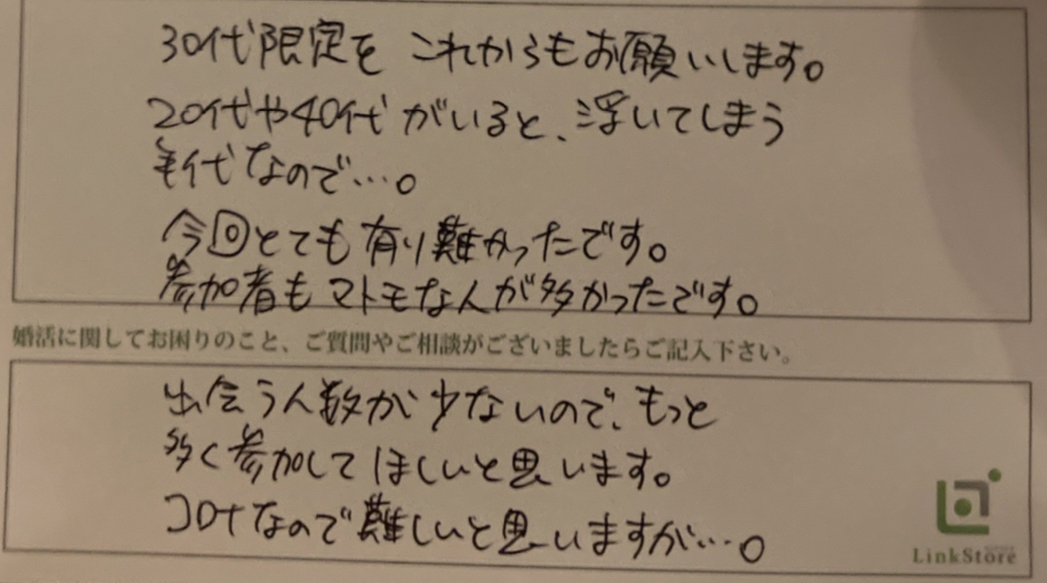 30代限定を これからもお願いします。
20代や40代がいると、浮いてしまう
年代なので…。
今回とても有り難かったです。
参加者もマトモな人が多かったです。
婚活に関してお困りのこと、ご質問やご相談がございましたらご記入下さい。
出会う人数が少ないので、もっと
多く参加してほしいと思います。
コロナなので難しいと思いますが…。
LinkStore